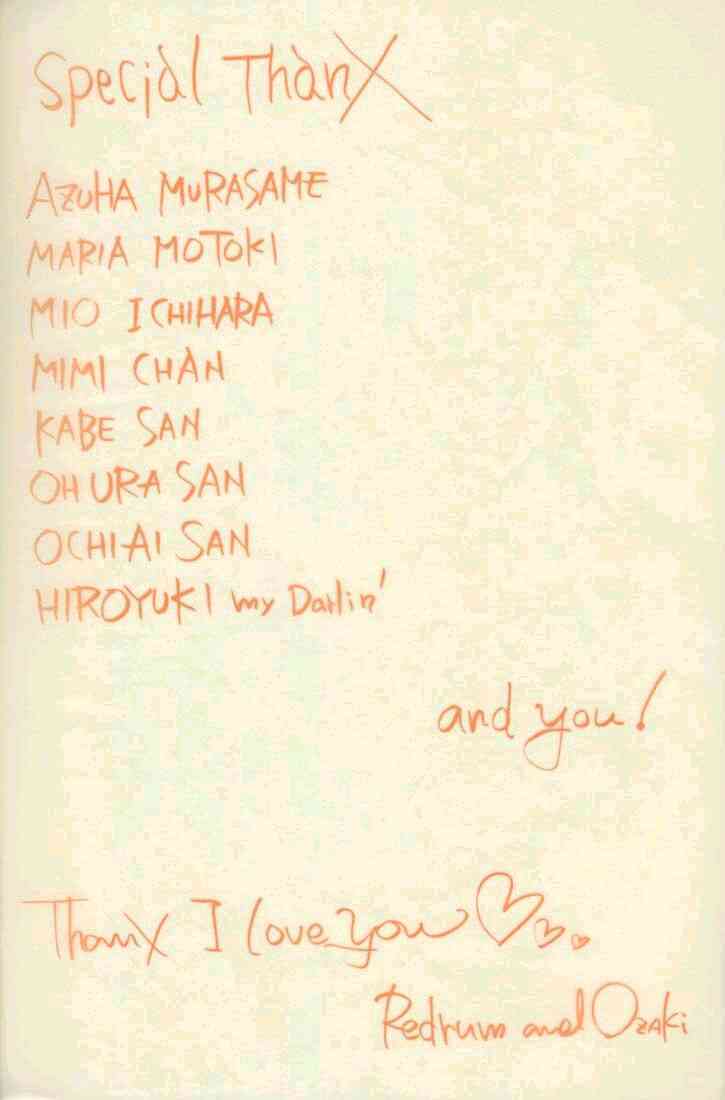 Special ThanX
AZUHA MURASAME
MARIA MOTOKI
MIO ICHIHARA
MIMI CHAN
KABE SAN
OHURA SAN
OCHIAI SAN
HIROYUKI my Darlin'
and you!
ThanX I love you ♡♡♡
Redrum and Ozaki